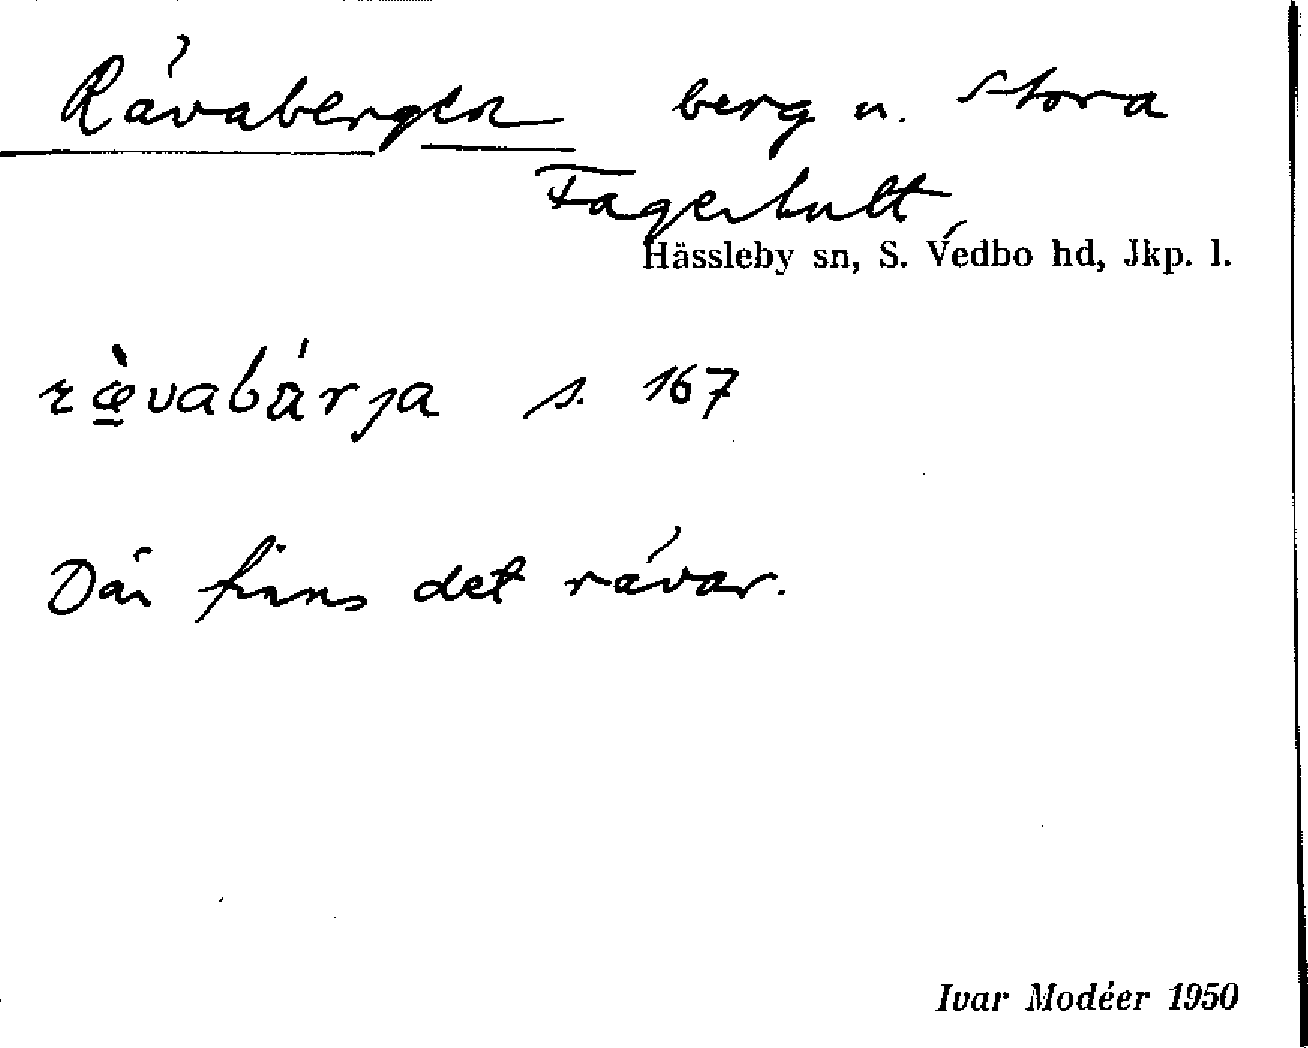 Rävabergen berg n. Stora
Fagerhult,
Hässleby sn, S. Vedbo hd, Jkp. l.
ræ̠̀vabárja s. 167
Där finns det rävar.
Ivar Modéer 1950